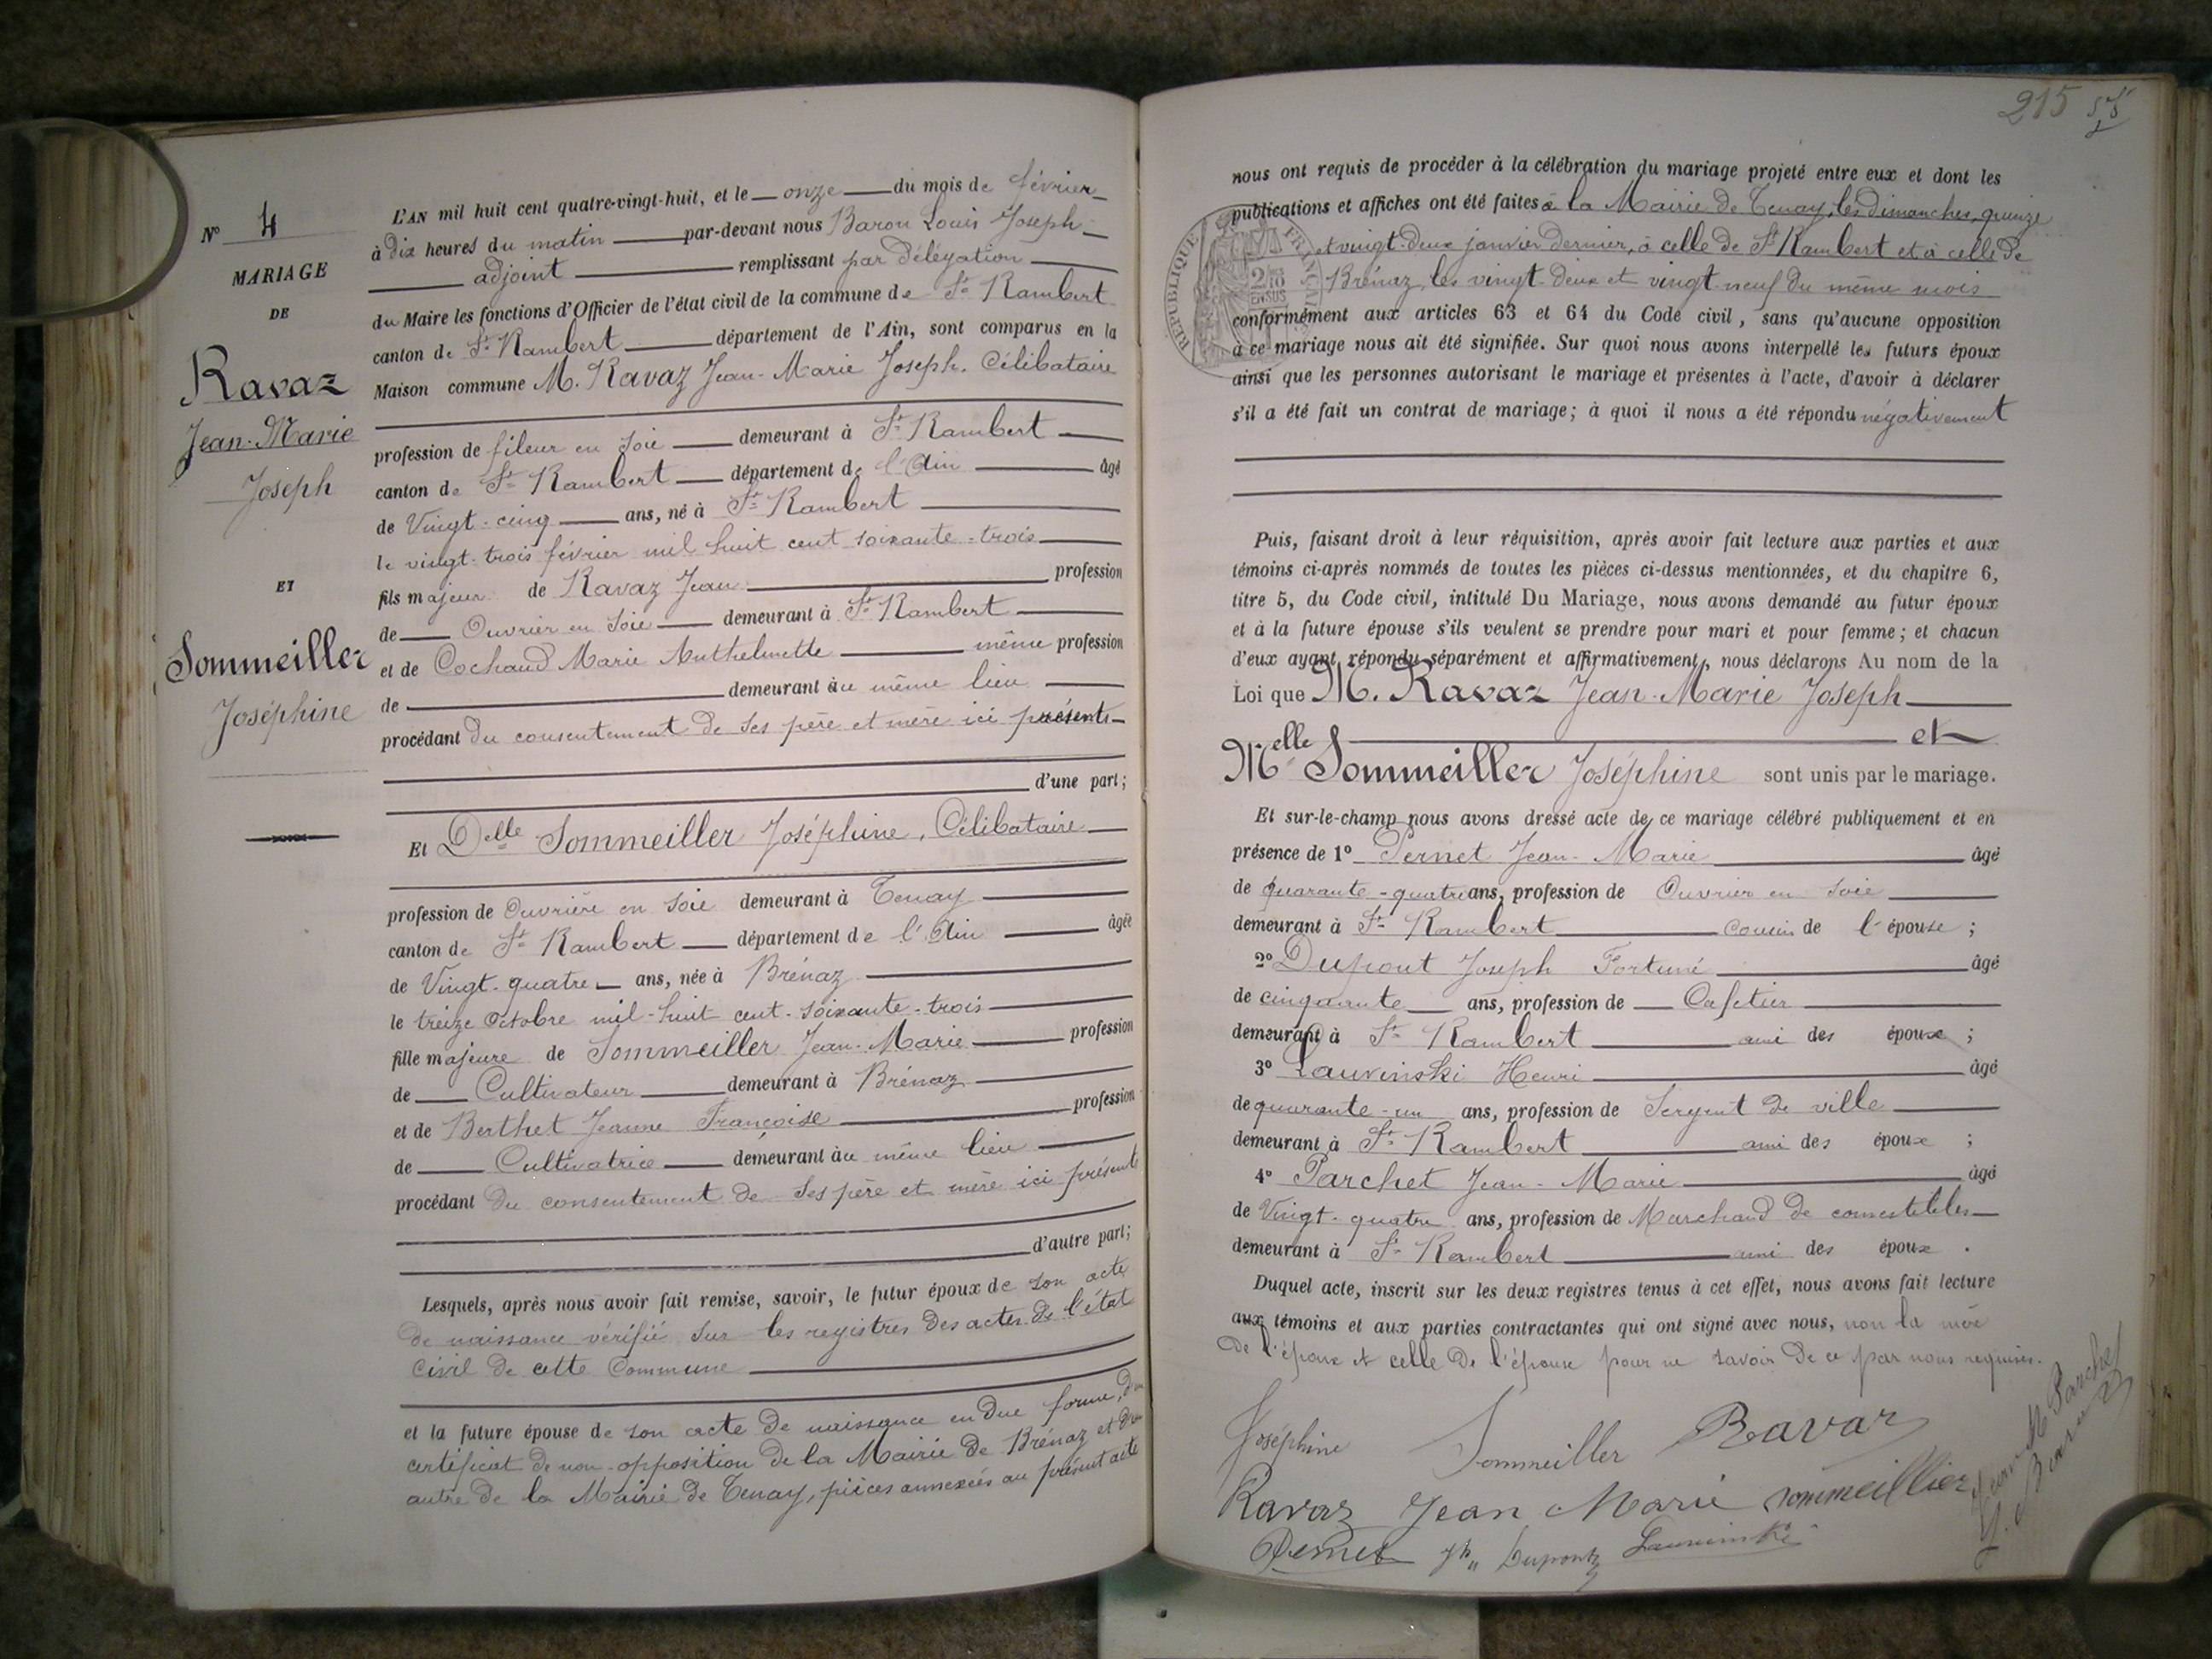 N° 4
MARIAGE
DE
Ravaz
Jean-Marie
Joseph
ET
Sommeiller
Joséphine
L'AN mil huit cent quatre-vingt-huit, et le onze du mois de février
à dix heures du matin par-devant nous Baron Louis Joseph
adjoint remplissant par délégation
du Maire les fonctions d'Officier de l'état civil de la commune de St Rambert
canton de St Rambert département de l'Ain, sont comparus en la
Maison commune M. Ravaz Jean-Marie Joseph. Célibataire
profession de fileur en soie demeurant à St Rambert
canton de St Rambert département de l'Ain âgé
de Vingt-cinq ans, né à St Rambert
le vingt-trois février mil huit cent soixante-trois
fils majeur de Ravaz Jean profession
de Ouvrier en soie demeurant à St Rambert
et de Cochaud Marie Anthelmette même profession
de demeurant au même lieu
procédant du consentement de ses père et mère ici présents
d'une part;
Et Delle Sommeiller Joséphine, Célibataire
profession de Ouvrière en soie demeurant à Tenay
canton de St Rambert département de l'Ain âgée
de Vingt-quatre ans, née à Brénaz
le treize Octobre mil-huit cent-soixante-trois
fille majeure de Sommeiller Jean-Marie profession
de Cultivateur demeurant à Brénaz
et de Berthet Jeanne Françoise profession
de Cultivatrice demeurant au même lieu
procédant du consentement de ses père et mère ici présents
d'autre part;
Lesquels, après nous avoir fait remise, savoir, le futur époux de son acte
de naissance vérifié sur les registres des actes de l'état
civil de cette Commune
et la future épouse de son acte de naissance en due forme, d'un
certificat de non-opposition de la Mairie de Brénaz et d'un
autre de la Mairie de Tenay, pièces annexées au présent acte
215
nous ont requis de procéder à la célébration du mariage projeté entre eux et dont les
publications et affiches ont été faites à la Mairie de Tenay, les dimanches, quinze
et vingt-deux janvier dernier, à celle de St Rambert et à celle de
Brénaz, les vingt-deux et vingt-neuf du même mois
conformément aux articles 63 et 64 du Code civil, sans qu'aucune opposition
à ce mariage nous ait été signifiée. Sur quoi nous avons interpellé les futurs époux
ainsi que les personnes autorisant le mariage et présentes à l'acte, d'avoir à déclarer
s'il a été fait un contrat de mariage; à quoi il nous a été répondu négativement
Puis, faisant droit à leur réquisition, après avoir fait lecture aux parties et aux
témoins ci-après nommés de toutes les pièces ci-dessus mentionnées, et du chapitre 6,
titre 5, du Code civil, intitulé Du Mariage, nous avons demandé au futur époux
et à la future épouse s'ils veulent se prendre pour mari et pour femme; et chacun
d'eux ayant répondu séparément et affirmativement, nous déclarons Au nom de la
Loi que M. Ravaz Jean-Marie Joseph
et
Melle Sommeiller Joséphine sont unis par le mariage.
Et sur-le-champ nous avons dressé acte de ce mariage célébré publiquement et en
présence de 1° Pernet Jean-Marie âgé
de quarante-quatre ans, profession de Ouvrier en soie
demeurant à St Rambert cousin de l'épouse;
2° Dupont Joseph Fortuné âgé
de cinquante ans, profession de Cafetier
demeurant à St Rambert ami des époux;
3° Lauvinski Henri âgé
de quarante-un ans, profession de Sergent de ville
demeurant à St Rambert ami des époux;
4° Parchet Jean-Marie âgé
de Vingt-quatre ans, profession de Marchand de comestibles
demeurant à St Rambert ami des époux.
Duquel acte, inscrit sur les deux registres tenus à cet effet, nous avons fait lecture
aux témoins et aux parties contractantes qui ont signé avec nous, non la mère
de l'époux et celle de l'épouse pour ne savoir de ce par nous requises.
Joséphine Sommeiller Ravaz
Ravaz Jean Marie Sommeillier
Pernet Jh Dupont Lauvinski
Parchet
Baron